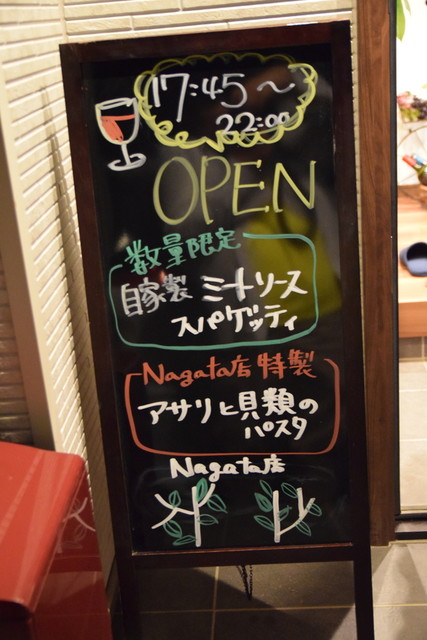 17:45〜
22:00
OPEN
数量限定
自家製 ミートソース
スパゲッティ
Nagata店 特製
アサリと貝類の
パスタ
Nagata店